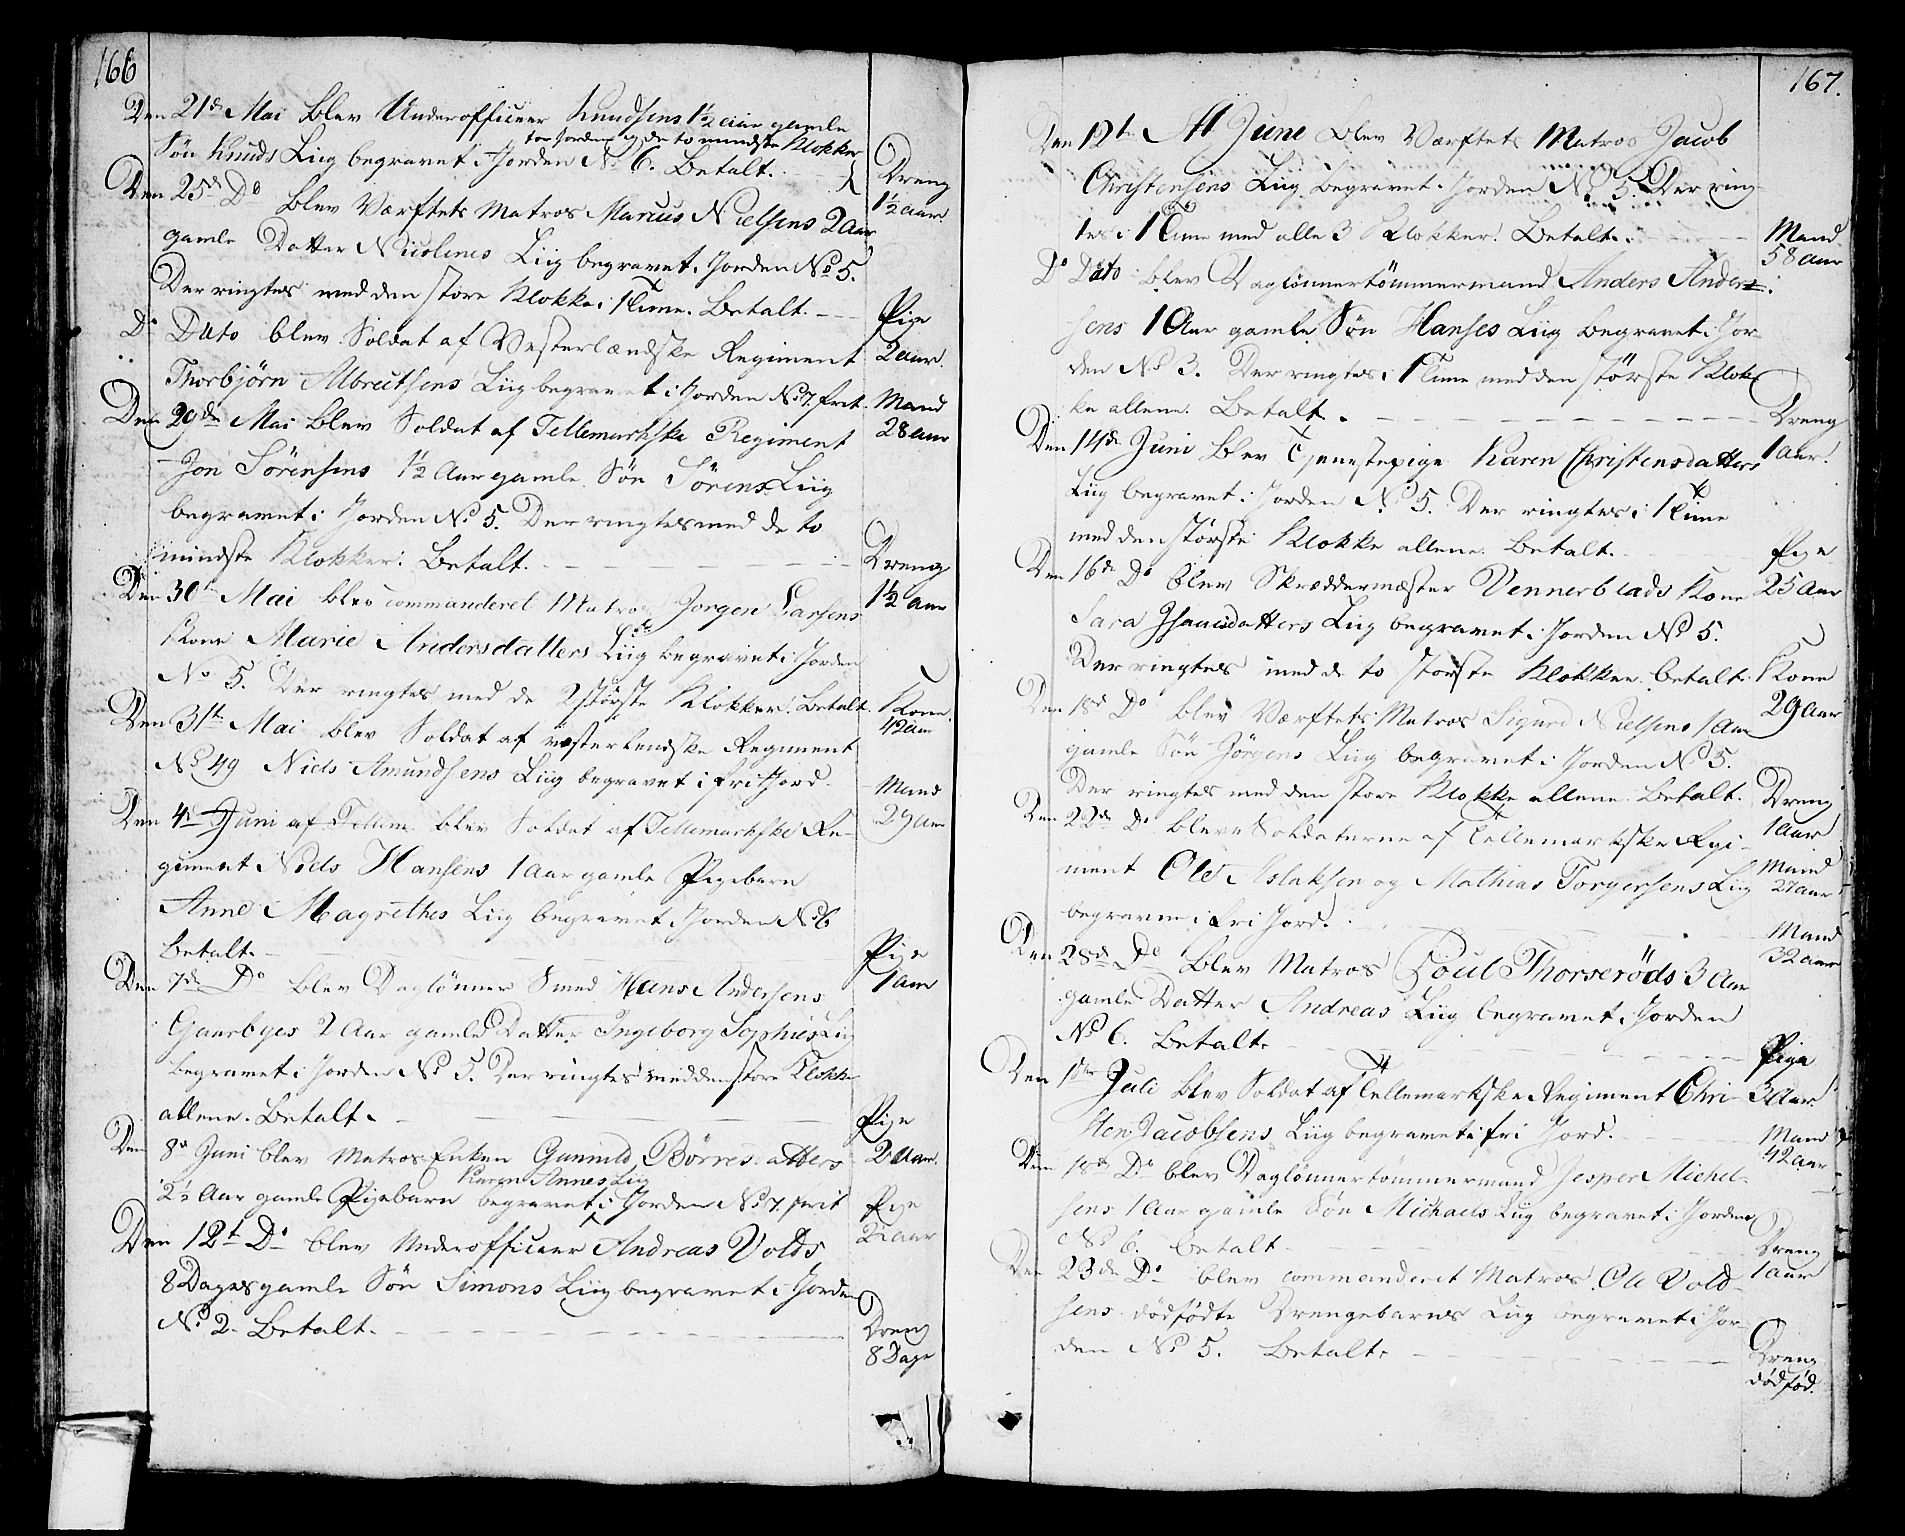 166
Den 21de Mai blev Underofficeer Knudsens 1½ Aar gamle
for Jorden og de to mindste Klokker
Søn Knuds Liig begravet i Jorden No 6. Betalt.
Dreng
1½ Aar.
Den 25de Do blev Værftets Matros Marcus Nielsens 2 Aar
gamle Datter Nicolines Liig begravet i Jorden No 5.
Der ringtes med den store Klokke i 1 Time. Betalt.
Pige
2 Aar.
Do Dato blev Soldat af Vesterlændske Regiment
Thorbjörn Albretsens Liig begravet i Jorden No 7. frit.
Mand
28 Aar
Den 29de Mai blev Soldat af Tellemarkske Regiment
Jon Sörensens 1½ Aar gamle Søn Sörens Liig
begravet i Jorden No 5. Der ringtes med de to
mindste Klokker. Betalt.
Dreng
1½ Aar
Den 30te Mai blev commanderet Matros Jorgen Larsens
Kone Marie Andersdatters Liig begravet i Jorden
No 5. Der ringtes med de 2 største Klokker. Betalt.
Kone.
42 Aar
Den 31te Mai blev Soldat af vesterlendske Regiment
No 49 Niels Amundsens Liig begravet i fri Jord.
Mand
29 Aar
Den 4de Juni af Tellem blev Soldat af Tellemarkske Re-
giment Niels Hansens 1 Aar gamle Pigebarn
Anne Magrethes Liig begravet i Jorden No 6
betalt.
Pige
1 Aar
Den 7de Do blev Daglönner Smed Hans Andersens
Gaarbyes 2 Aar gamle Datter Ingeborg Sophies Liig
begravet i Jorden No 5. Der ringtes med den store Klokke
allene. Betalt.
Pige
2 Aar.
Den 8de Juni blev Matros Enken Gunnild Börresdatters
Karen Annes Liig
2½ Aar gamle Pigebarn begravet i Jorden No 7. frit
Pige
2½ Aar
Den 12te Do blev Underofficeer Andreas Volds
8 Dages gamle Søn Simons Liig begravet i Jorden
No 2. Betalt.
Dreng
8 Dage
167.
Den 12te Juni blev Værftets Matros Jacob
Christensens Liig begravet i Jorden No 5. Der ring-
tes i 1 Time med alle 3 Klokker. Betalt.
Mand
58 Aar
Do Dato blev Daglönnertömmermand Anders Ander-
sens 1 Aar gamle Søn Hanses Liig begravet i Jor-
den No 3. Der ringtes i 1 Time med den største Klok-
ke allene. Betalt.
Dreng
1 Aar.
Den 14de Juni blev Tjenestepige Karen Christensdatters
Liig begravet i Jorden No 5. Der ringtes i 1 Time
med den største Klokke allene. Betalt.
Pige
25 Aar
Den 16de Do blev Skræddermester Vennerblads Kone
Sara Isaacsdatters Liig begravet i Jorden No 5.
Der ringtes med de to største Klokker. betalt.
Kone
29 Aar
Den 18de Do blev Værftets Matros Sigurd Nielsens 1 Aar
gamle Søn Jörgens Liig begravet i Jorden No 5.
Der ringtes med den store Klokke allene. Betalt.
Dreng
1 Aar
Den 22de Do bleve Soldaterne af Tellemarkske Regi-
ment Ole Aslaksen og Mathias Torgersens Liig
begravne i fri Jord.
Mand
27 Aar
Mand
32 Aar
Den 28de Do blev Matros Poul Thorseröds 3 Aar
gamle Datter Andreas Liig begravet i Jorden
No 6. Betalt.
Pige
3 Aar.
Den 1te Juli blev Soldat af Tellemarkske Regiment Chri-
sten Jacobsens Liig begravet i fri Jord.
Mand
42 Aar
Den 18de Do blev Daglönnertömmermand Jesper Michel-
sens 1 Aar gamle Søn Michaels Liig begravet i Jorden
No 6. betalt
Dreng
1 Aar
Den 23de Do blev commanderet Matros Ole Vold-
sens dødfødte Drengebarns Liig begravet i Jor-
den No 5. Betalt.
Dreng
dödfød.